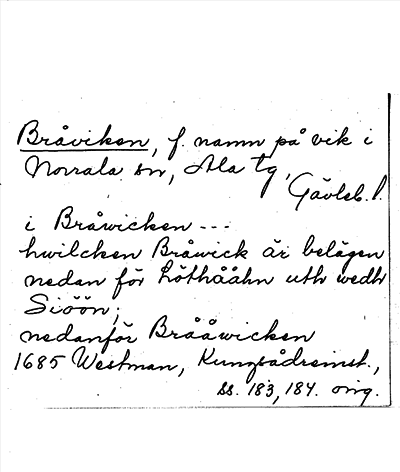 Bråviken, f. namn på vik i
Norrala sn, Ala tg,
Gävleb. l.
i Bråwicken ---
hwilcken Bråwick är belägen
nedan för Löthååhn uth wedh
Siöön;
nedanför Brååwicken
1685 Westman, Kungsådreinst.,
ss. 183, 184. orig.